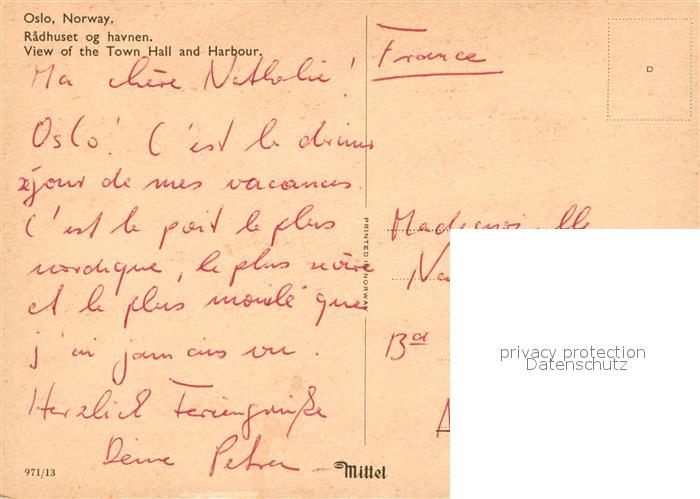 Oslo, Norway.
Rådhuset og havnen.
View of the Town Hall and Harbour.
Ma chère Nathalie!
Oslo! C'est le dernier
séjour de mes vacances.
C'est le port le plus
nordique, le plus
et le plus que
j'ai jamais vu.
Herzlich Feriengrüße
Deine Petra
971/13
Mittet
PRINTED IN NORWAY
D
France
Mademoiselle
Na
Bd
privacy protection
Datenschutz